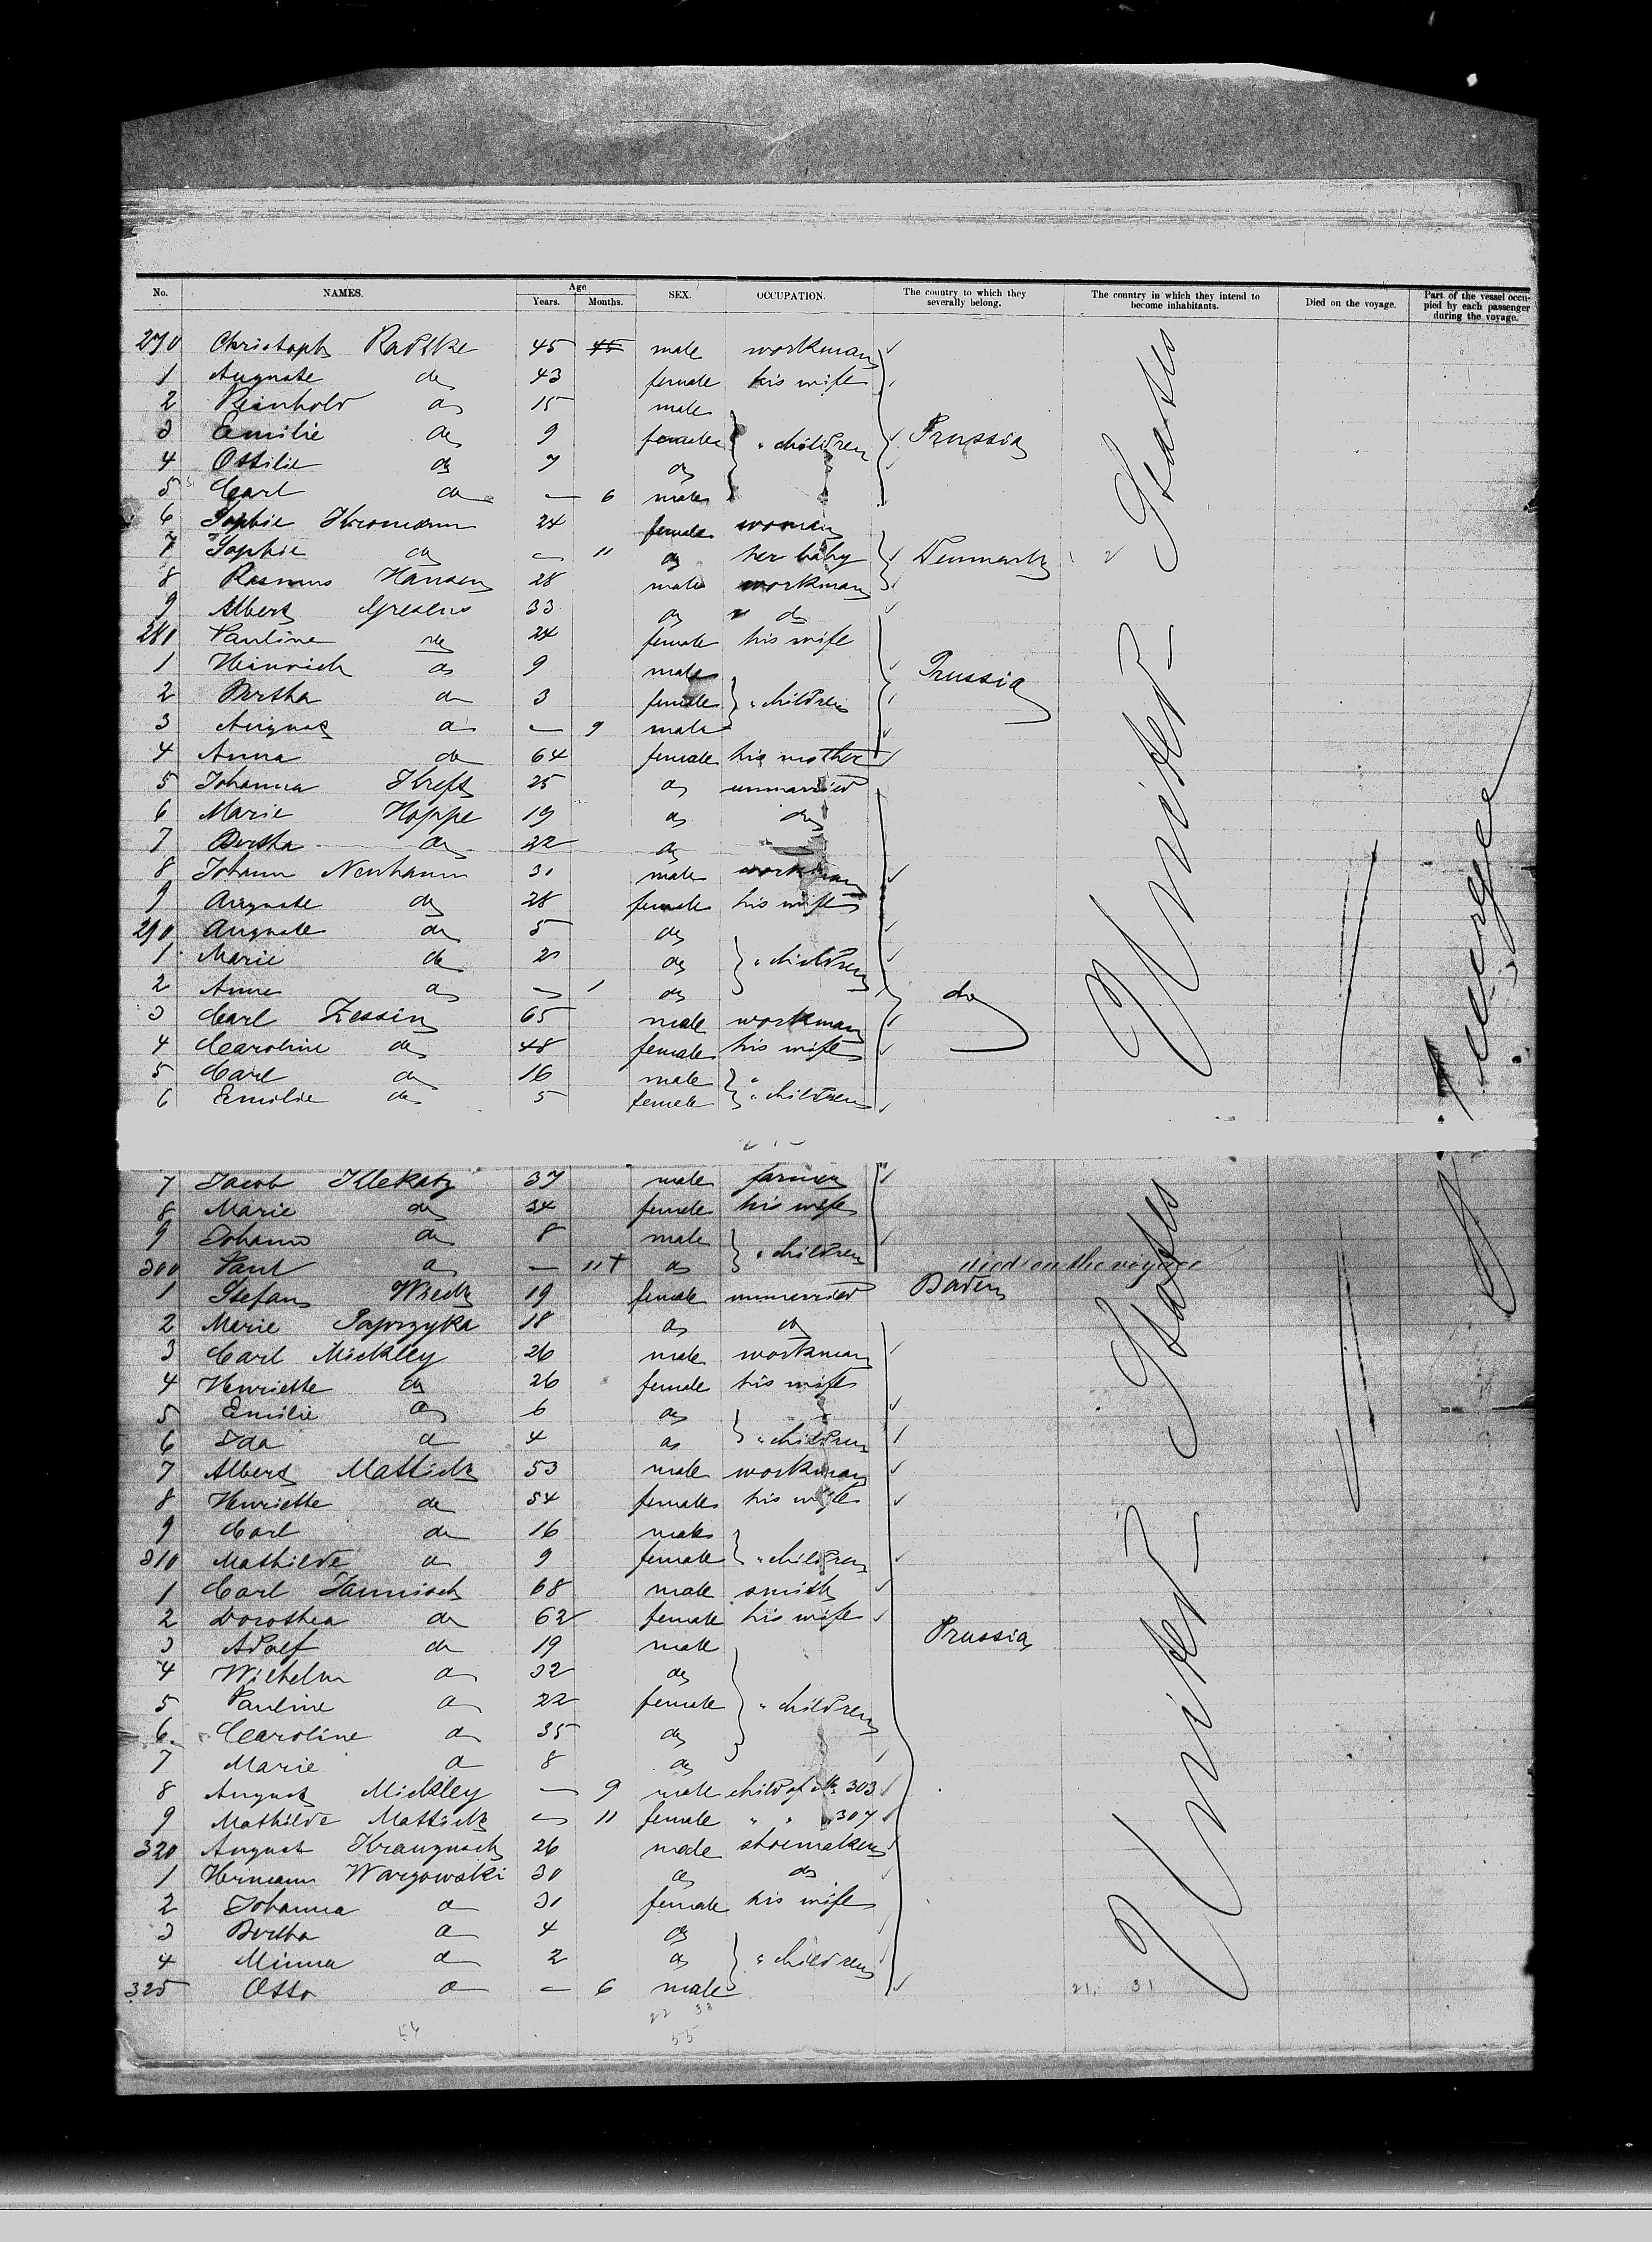 No. NAMES. Age Years. Months. SEX. OCCUPATION. The country to which they severally belong. The country in which they intend to become inhabitants. Died on the voyage. Part of the vessel occupied by each passenger during the voyage.
270 Christoph Radtke 45 45 male workman
1 Auguste do 43 female his wife
2 Reinhold do 15 male
3 Emilie do 9 female " children Prussia
4 Ottilie do 7 do
5 Carl do — 6 male
6 Sophie Thromann 24 female woman
7 Sophie do — 11 do her baby Denmark
8 Rasmus Hansen 28 male workman
9 Albert 33 do " do
280 Pauline do 24 female his wife
1 Heinrich do 9 male Prussia
2 Bertha do 3 female " children
3 August do — 9 male
4 Anna do 64 female his mother
5 Johanna Kreft 25 do unmarried
6 Marie Hoppe 19 do do
7 Bertha do 22 do
8 Johann Neuhaum 31 male workman
9 Auguste do 28 female his wife
290 Auguste do 5 do
1 Marie do 2 do " children
2 Anne do — 1 do do
3 Carl Zessin 65 male workman
4 Caroline do 48 female his wife
5 Carl do 16 male "
6 Emilie do 5 female " children
7 Jacob Klekatz 37 male farmer
8 Marie do 34 female his wife
9 Johann do 8 male " children
300 Paul do — 11 † do died on the voyage
1 Stefans Wieck 19 female unmarried Baden
2 Marie Paprzyka 18 do do
3 Carl Mickley 26 male workman
4 Henriette do 26 female his wife
5 Emilie do 6 do
6 Ida do 4 do " children
7 Albert Mattick 53 male workman
8 Henriette do 54 female his wife
9 Carl do 16 male
310 Mathilde do 9 female " children
1 Carl Jannisch 68 male smith
2 Dorothea do 62 female his wife Prussia
3 Adolf do 19 male
4 Wilhelm do 32 do
5 Pauline do 22 female " children
6 Caroline do 35 do
7 Marie do 8 do
8 August Mickley — 9 male child of No 303
9 Mathilde Mattick — 11 female " " 307
320 August Kraugusch 26 male shoemaker
1 Hermann Wargowski 30 do do
2 Johanna do 31 female his wife
3 Bertha do 4 do
4 Minna do 2 do " children
325 Otto do — 6 male
21. 31
22 33
54 55
United States
United States
Steerage